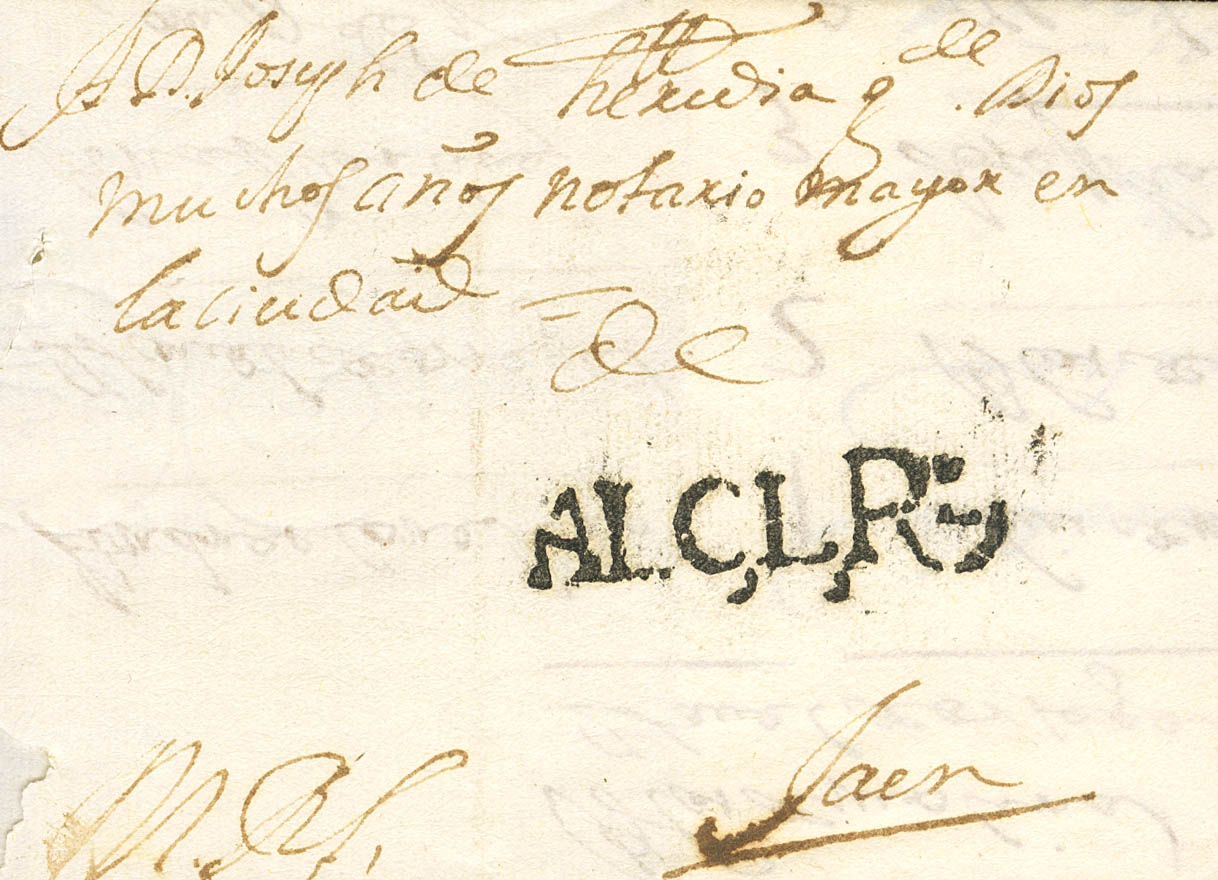 A D. Joseph de heredia g.de Dios
muchos años notario mayor en
la ciudad =
de
ALC,L,R
Jaen